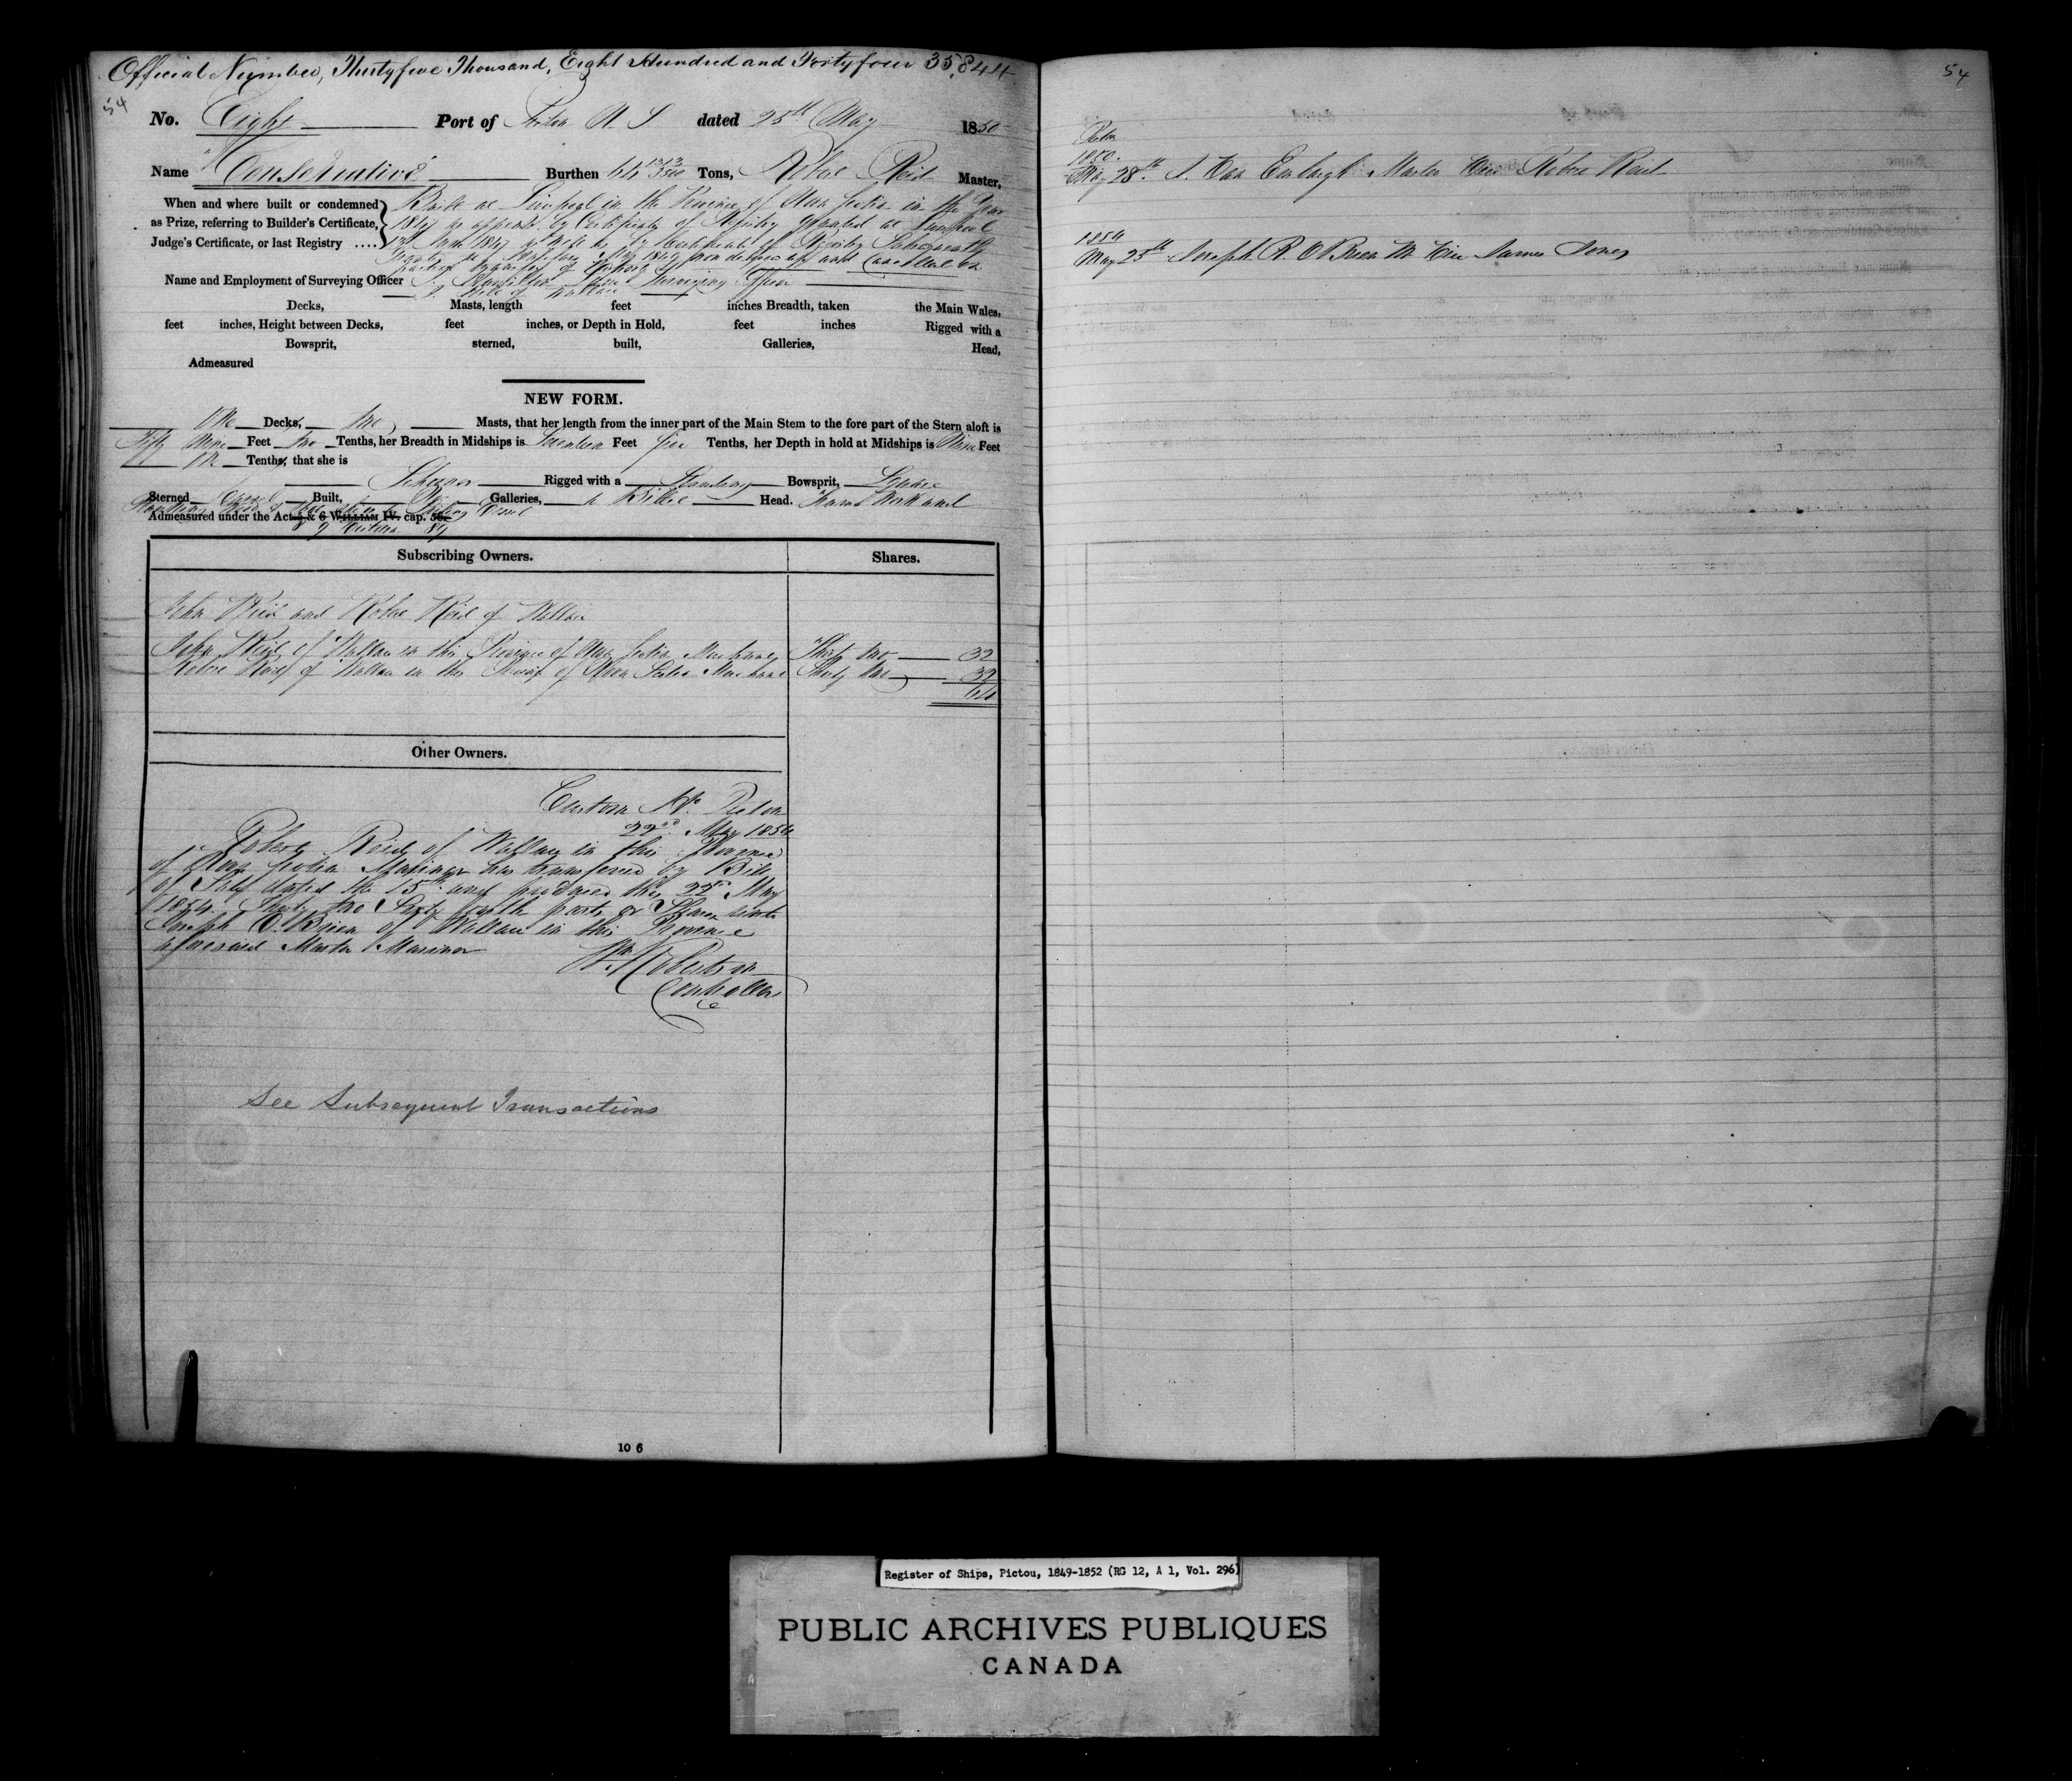 Official Number, Thirtyfive Thousand, Eight Hundred and Fortyfour 35,844
54
No. Eight Port of Pictou N S dated 25th May 1850
Name "Conservative" Burthen 64 Tons, Robert Reid Master,
When and where built or condemned as Prize, referring to Builder's Certificate, Judge's Certificate, or last Registry ....
Built at Liverpool in the Province of Nova Scotia in the Year
1847 as appears by Certificate of Registry granted at Liverpool
1847 by Certificate of Registry Subsequently
1849 now delivered up and Cancelled on
transfer of Property
Name and Employment of Surveying Officer Surveying Officer
of Wallace
Decks, Masts, length feet inches Breadth, taken the Main Wales,
feet inches, Height between Decks, feet inches, or Depth in Hold, feet inches Rigged with a
Bowsprit, sterned, built, Galleries, Head,
Admeasured
NEW FORM.
One Decks, two Masts, that her length from the inner part of the Main Stem to the fore part of the Stern aloft is
Fifty Nine Feet two Tenths, her Breadth in Midships is Seventeen Feet five Tenths, her Depth in hold at Midships is Nine Feet
One Tenths, that she is
Schooner Rigged with a Standing Bowsprit, Square
Sterned Carvel Built, No Galleries, a Billet Head. Frame Work and
Planking Wood Sailing Vessel
Admeasured under the Act 5 & 6 WILLIAM IV. cap. 56.
8 & 9 Victoria 89
Subscribing Owners. Shares.
John Reid and Robert Reid of Wallace
John Reid of Wallace in the Province of Nova Scotia Merchant Thirty two 32
Robert Reid of Wallace in the Province of Nova Scotia Merchant Thirty two 32
64
Other Owners.
Custom Ho. Pictou
22nd May 1854
Robert Reid of Wallace in this Province
of Nova Scotia Mariner has transferred by Bill
of Sale dated the 15th and produced the 22nd May
1854 Thirty two Sixty fourth parts or Shares unto
Joseph O'Brien of Wallace in this Province
aforesaid Master Mariner
Wm Robertson
Controller
See Subsequent Transactions
10 6
54
Pictou
1850.
May 28th Master vice Robert Reid
1854
May 25th Joseph R. O'Brien M. vice James Jones
Register of Ships, Pictou, 1849-1852 (RG 12, A 1, Vol. 296)
PUBLIC ARCHIVES PUBLIQUES
CANADA